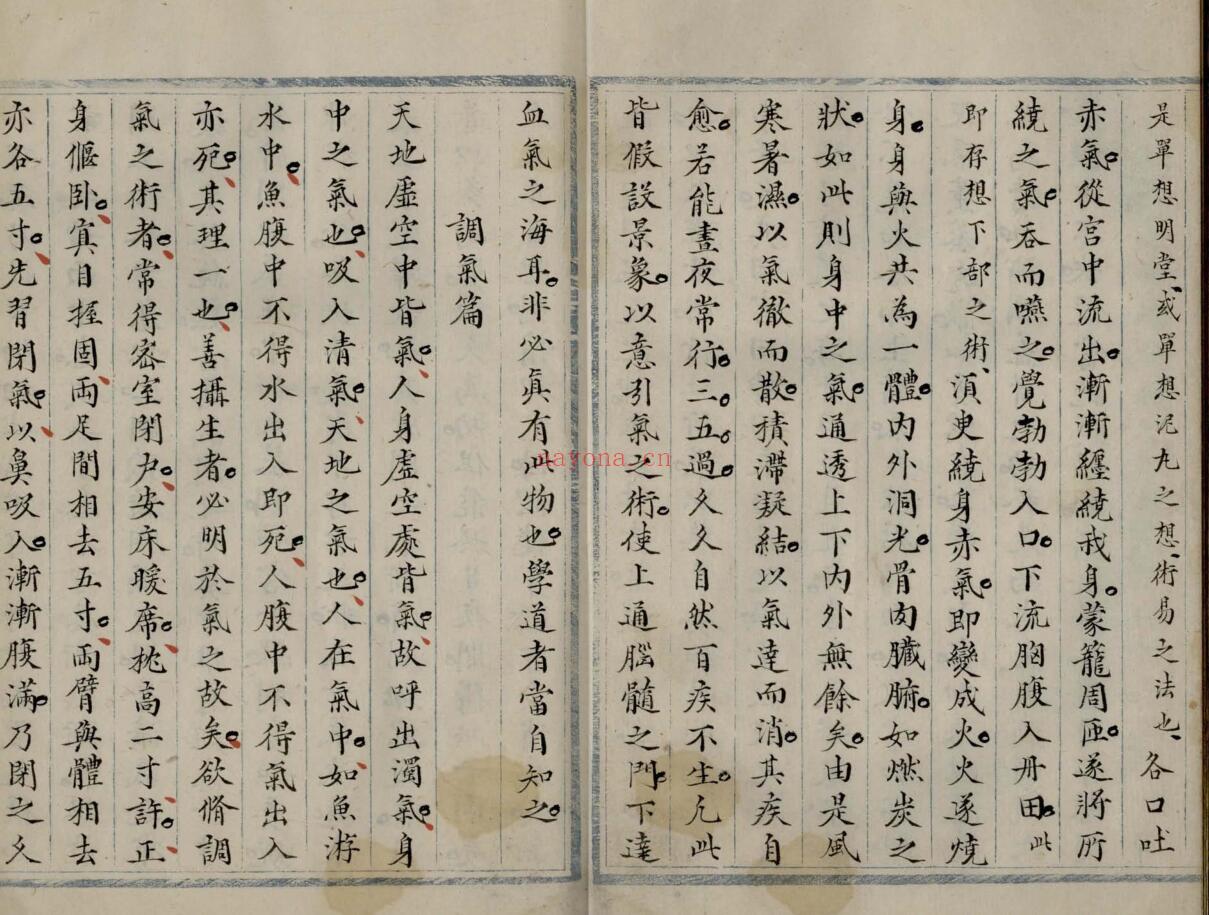 是單想明堂、或單想泥丸之想、術易之法也、各口吐
赤氣。從宮中流出。漸漸纏繞我身。蒙籠周匝。遂將所
繞之氣。吞而嚥之。覺勃勃入口。下流胸腹入丹田。此
即存想下部之術、須臾繞身赤氣。即變成火。火遂燒
身。身與火共為一體。內外洞光。骨肉臟腑。如燃炭之
狀。如此則身中之氣。通透上下內外無餘矣。由是風
寒暑濕。以氣徹而散。積滯凝結。以氣達而消。其疾自
愈。若能晝夜常行。三。五。過。久久自然百疾不生。凡此
皆假設景象。以意引氣之術。使上通腦髓之門。下達
血氣之海耳。非必真有此物也。學道者當自知之。
調氣篇
天地虛空中皆氣。人身虛空處皆氣。故呼出濁氣。身
中之氣也。吸入清氣。天地之氣也。人在氣中。如魚游
水中。魚腹中不得水出入即死。人腹中不得氣出入
亦死。其理一也。善攝生者。必明於氣之故矣。欲脩調
氣之術者。常得密室閉户。安床暖席。枕高二寸許。正
身偃卧。寘目握固、兩足間相去五寸。兩臂與體相去
亦各五寸。先習閉氣。以鼻吸入。漸漸腹滿。乃閉之久
nayona.cn